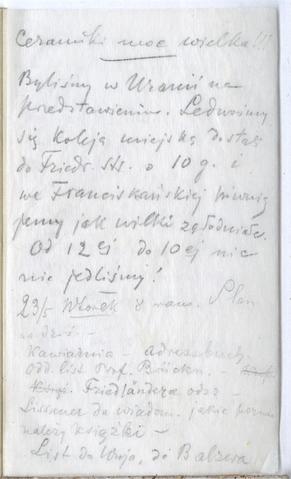 Ceramiki moc wielka!!!
Byliśmy w Uranii na
przedstawieniu. Ledwośmy
się koleją miejską dostali
do Friedr. Str. o 10 g. i
we Franciskańskiej piwnicy
jemy jak wilki zgłodniałe.
Od 12ej do 10ej nic
nie jedliśmy!
23/5 Wtorek 8 rano. Plan
na dziś -
Kawiarnia - adressbuch.
Odd. list Prof. Brückn.
Friedländera odsz -
Lissner da wiadom. jakie
należy książki -
List do Wuja, do Balzera